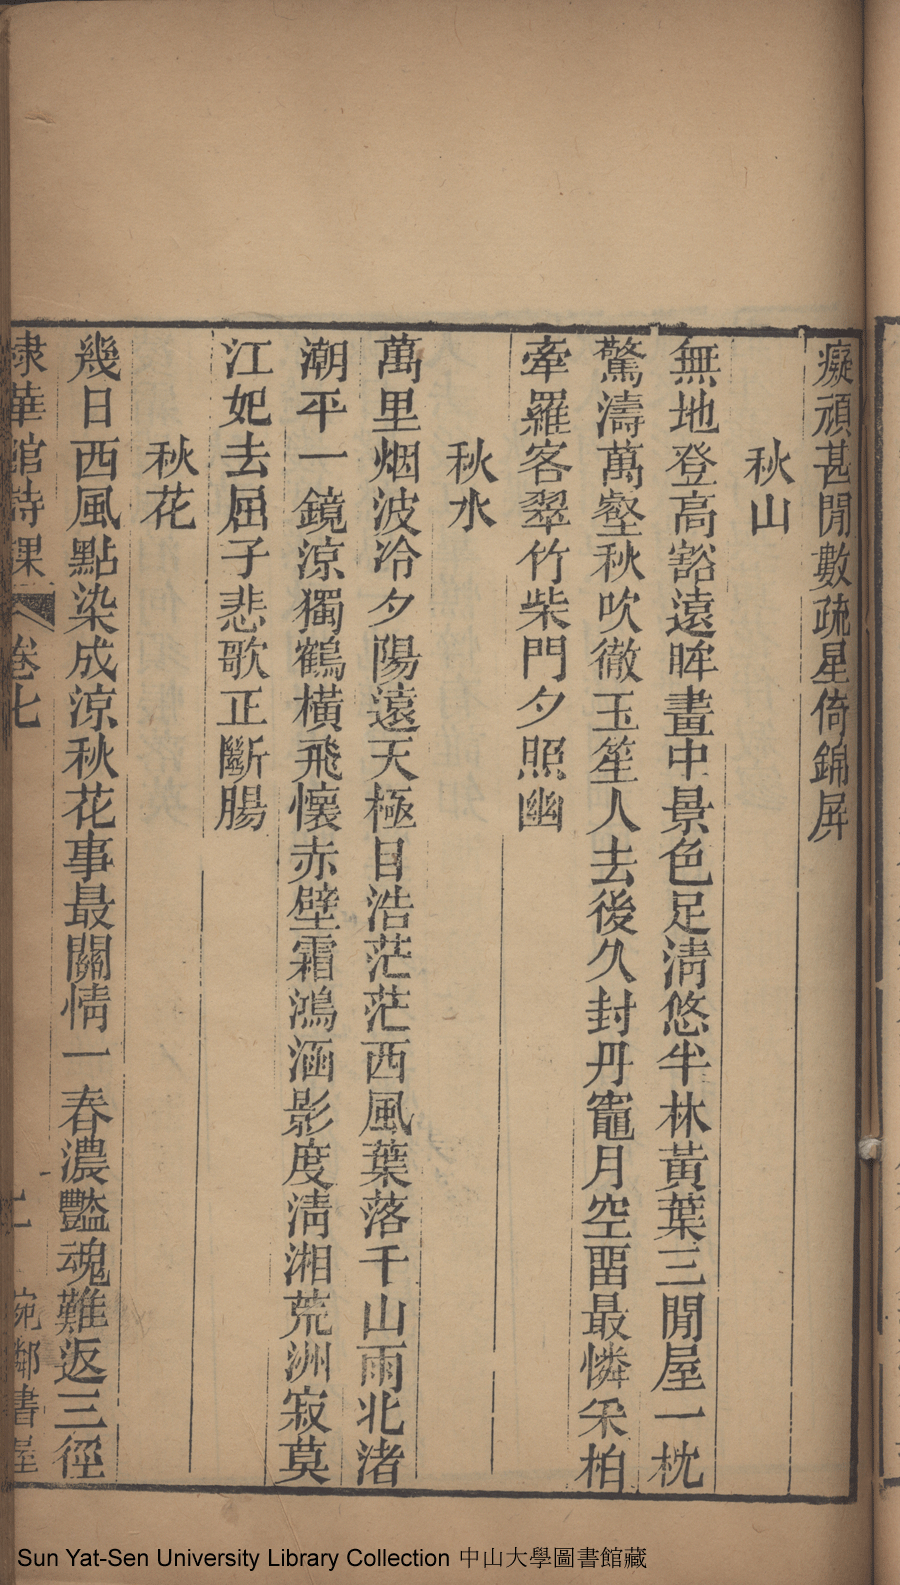 癡頑甚閒數疏星倚錦屏
秋山
無地登高豁遠眸畫中景色足淸悠半林黃葉三閒屋一枕
驚濤萬壑秋吹徹玉笙人去後久封丹竈月空畱最憐采柏
牽羅客翠竹柴門夕照幽
秋水
萬里烟波冷夕陽遠天極目浩茫茫西風葉落千山雨北渚
潮平一鏡涼獨鶴橫飛懷赤壁霜鴻涵影度淸湘荒洲寂莫
江妃去屈子悲歌正斷腸
秋花
幾日西風點染成涼秋花事最關情一春濃豔魂難返三徑
棣華館詩課 卷七 宛鄰書屋
Sun Yat-Sen University Library Collection 中山大學圖書館藏